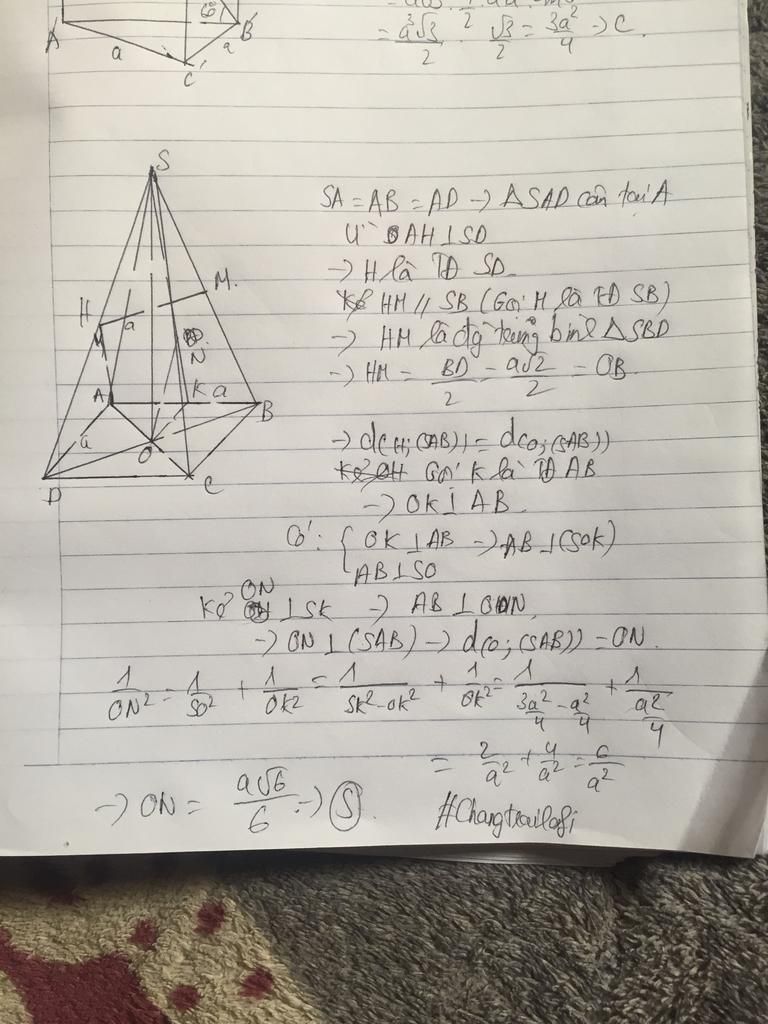 A' a C' a B' 60°
= a³√3/2 · √3/2 = 3a²/4 → C.
S
H a M.
N
A K a B
a O
D C
SA = AB = AD → △SAD cân tại A
AH ⊥ SD
→ H là TĐ SD.
HM // SB (Gọi M là TĐ SB)
→ HM là đg trung bình △SBD
→ HM = BD/2 = a√2/2 = OB
→ d(H;(SAB)) = d(O;(SAB))
Gọi K là TĐ AB
→ OK ⊥ AB
Có: { OK ⊥ AB → AB ⊥ (SOK)
AB ⊥ SO
Kẻ ON ⊥ SK → AB ⊥ ON.
→ ON ⊥ (SAB) → d(O;(SAB)) = ON.
1/ON² = 1/SO² + 1/OK² = 1/SK²-OK² + 1/OK² = 1/3a²/4 - a²/4 + 1/a²/4
= 2/a² + 4/a² = 6/a²
→ ON = a√6/6 → S
#Changtrailofi